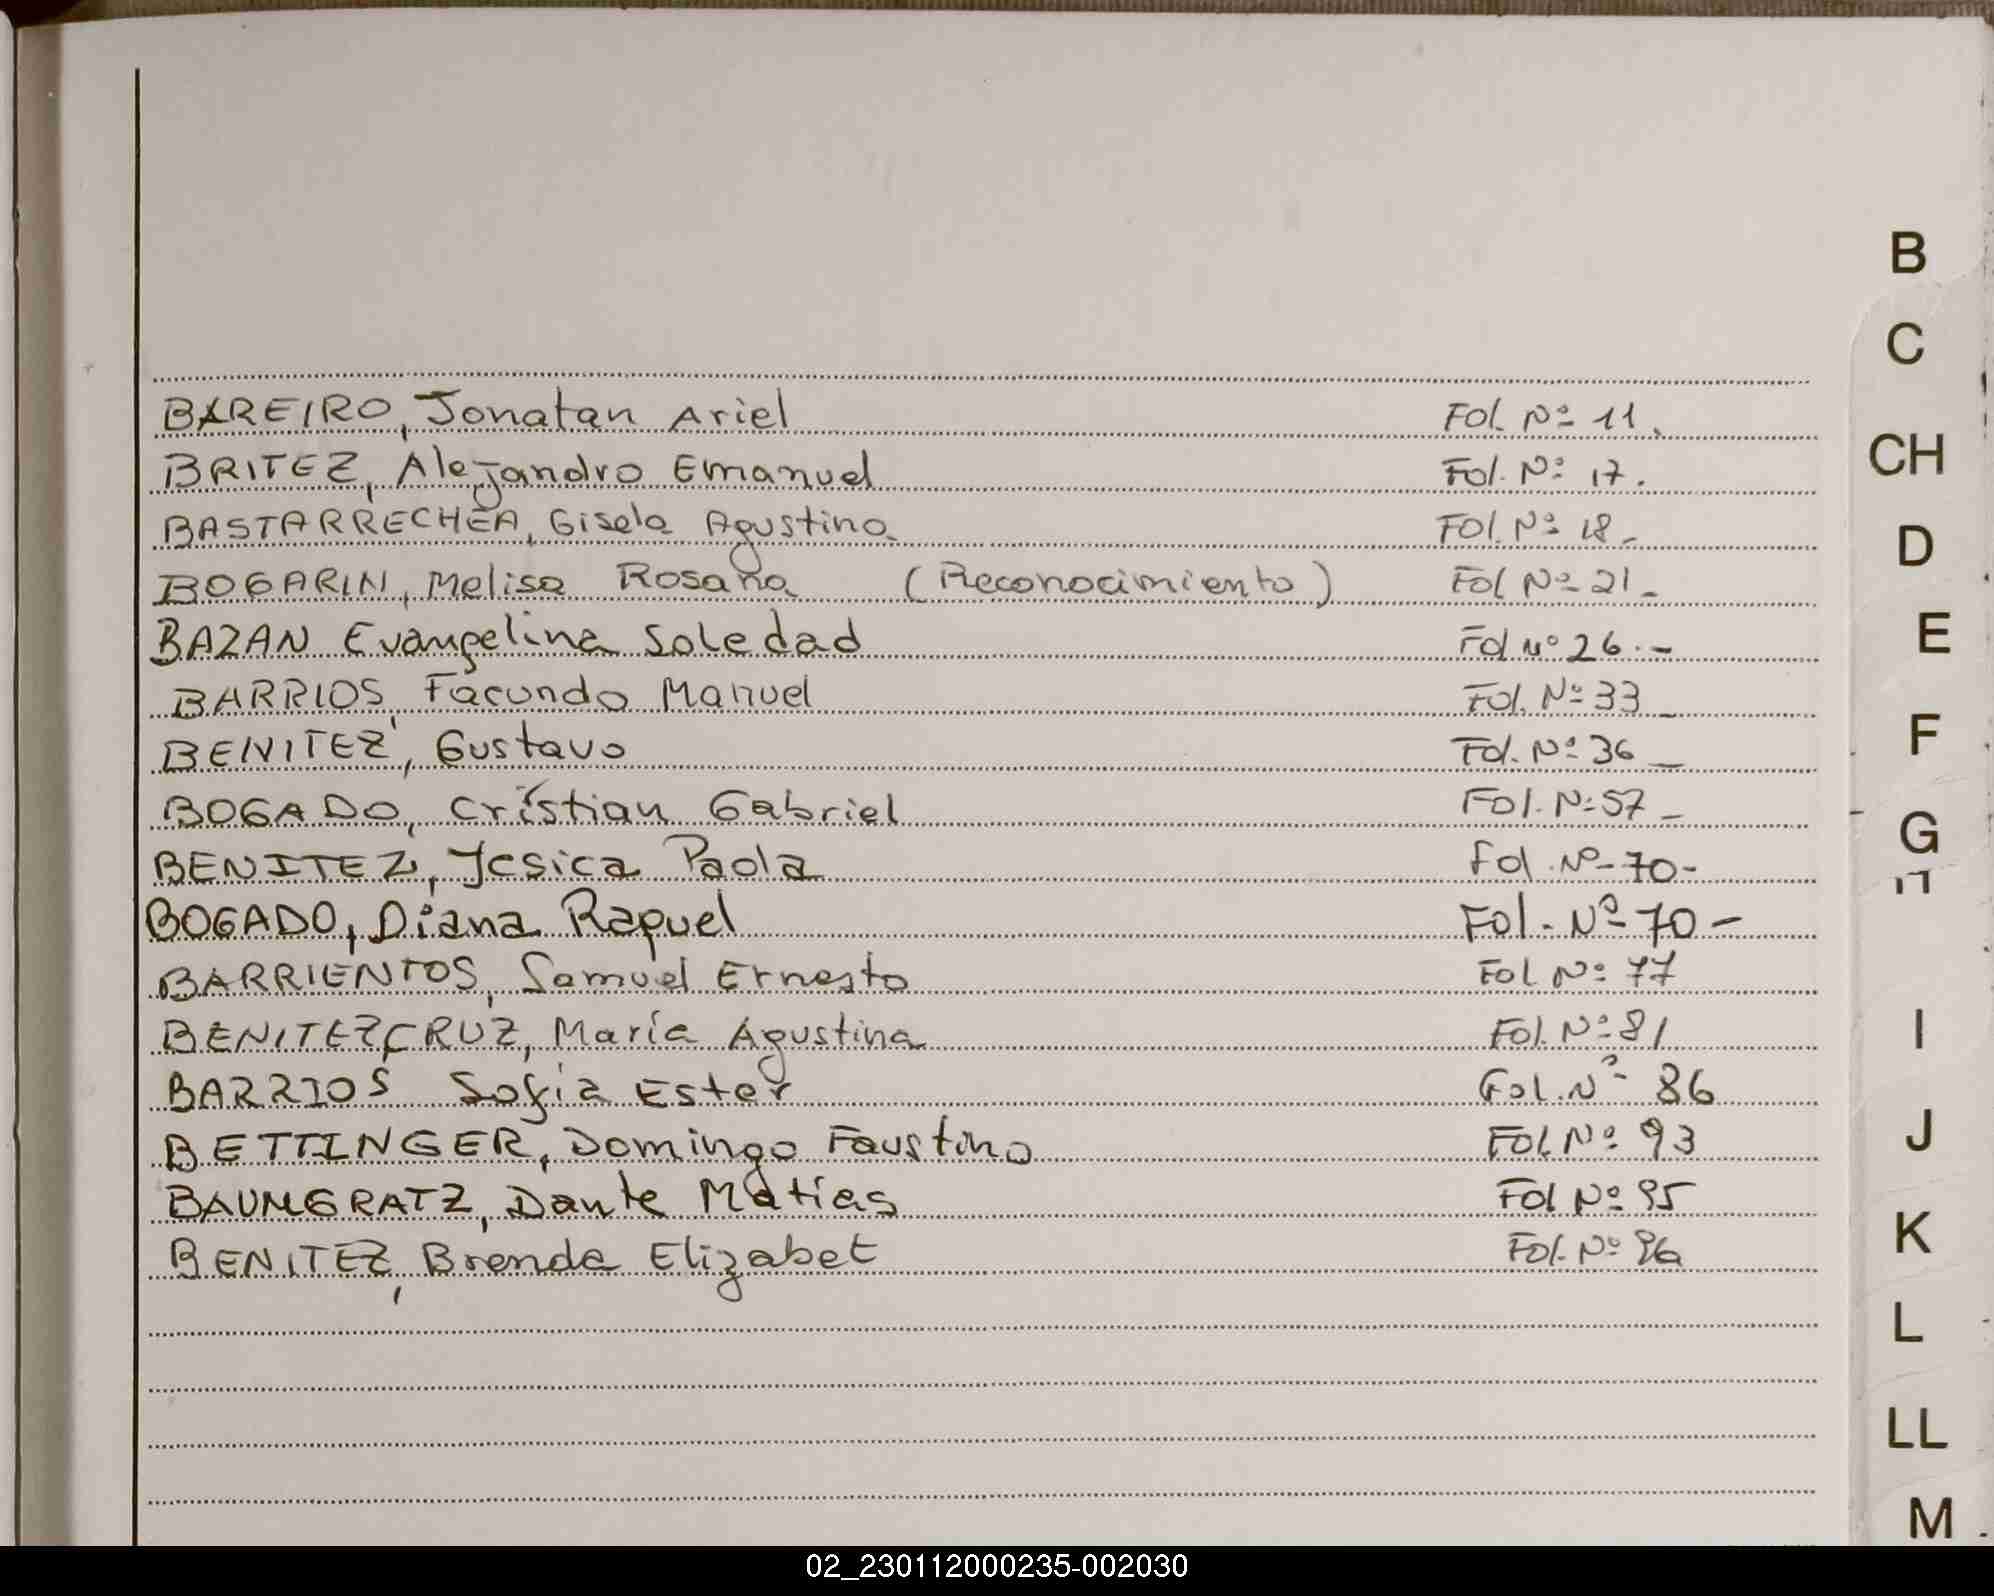 BAREIRO, Jonatan Ariel Fol. Nº 11.
BRITEZ, Alejandro Emanuel Fol. Nº 17.
BASTARRECHEA, Gisela Agustina Fol. Nº 18-
BOGARIN, Melisa Rosana (Reconocimiento) Fol Nº 21-
BAZAN Evangelina Soledad Fol Nº 26.-
BARRIOS, Facundo Manuel Fol. Nº 33-
BENITEZ, Gustavo Fol. Nº 36-
BOGADO, Cristian Gabriel Fol. Nº 57-
BENITEZ, Jesica Paola Fol. Nº 70-
BOGADO, Diana Raquel Fol. Nº 70-
BARRIENTOS, Samuel Ernesto Fol Nº 77
BENITEZ CRUZ, María Agustina Fol. Nº 81
BARRIOS Sofia Ester Fol. Nº 86
BETTINGER, Domingo Faustino Fol. Nº 93
BAUMGRATZ, Dante Matias Fol Nº 95
BENITEZ, Brenda Elizabet Fol. Nº 96
B
C
CH
D
E
F
G
I
J
K
L
LL
M
02_230112000235-002030